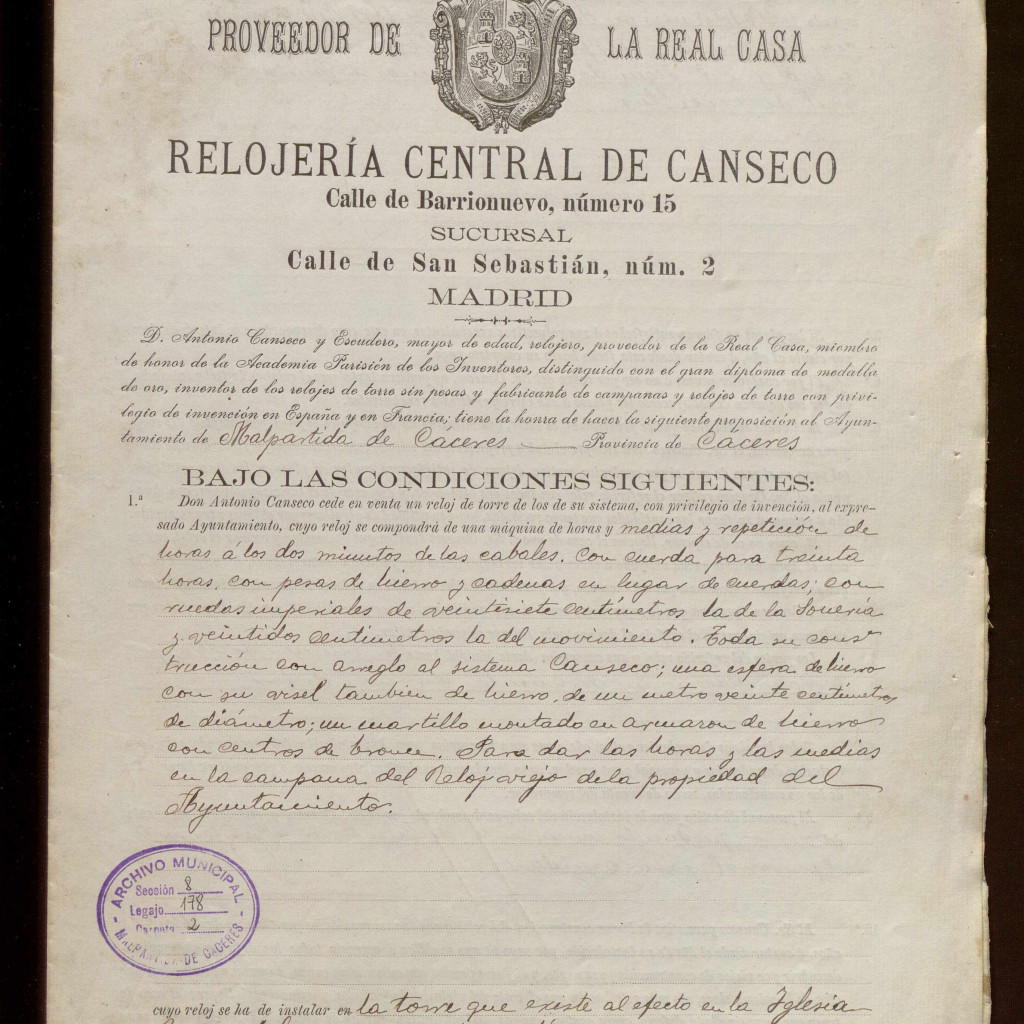 PROVEEDOR DE LA REAL CASA
RELOJERÍA CENTRAL DE CANSECO
Calle de Barrionuevo, número 15
SUCURSAL
Calle de San Sebastián, núm. 2
MADRID
D. Antonio Canseco y Escudero, mayor de edad, relojero, proveedor de la Real Casa, miembro
de honor de la Academia Parisién de los Inventores, distinguido con el gran diploma de medalla
de oro, inventor de los relojes de torre sin pesas y fabricante de campanas y relojes de torre con privi-
legio de invención en España y en Francia; tiene la honra de hacer la siguiente proposición al Ayun-
tamiento de Malpartida de Cáceres — Provincia de Cáceres
BAJO LAS CONDICIONES SIGUIENTES:
1.ª Don Antonio Canseco cede en venta un reloj de torre de los de su sistema, con privilegio de invención, al expre-
sado Ayuntamiento, cuyo reloj se compondrá de una máquina de horas y medias y repetición de
horas á los dos minutos de las cabales, con cuerda para treinta
horas, con pesas de hierro y cadenas en lugar de cuerdas; con
ruedas imperiales de veintisiete centímetros la de la Sonería
y veintidos centímetros la del movimiento. Toda su cons-
trucción con arreglo al sistema Canseco; una esfera de hierro
con su visel tambien de hierro, de un metro veinte centímetros
de diámetro; un martillo montado en armazon de hierro
con centros de bronce. Para dar las horas y las medias
en la campana del Reloj viejo de la propiedad del
Ayuntamiento.
ARCHIVO MUNICIPAL
Sección 8
Legajo 178
Carpeta 2
MALPARTIDA DE CACERES
cuyo reloj se ha de instalar en la torre que existe al efecto en la Iglesia